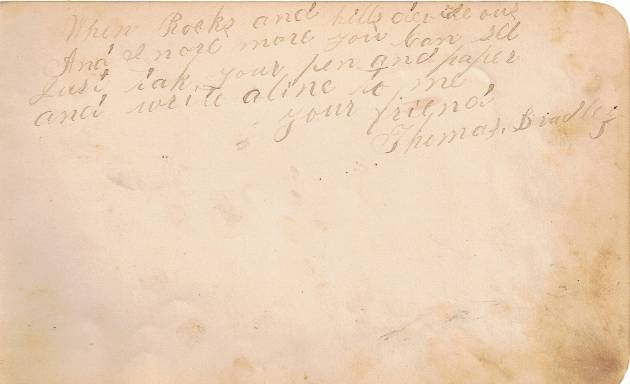 When Rocks and hills devide ous
And I no more you can see
Just tak your pen and paper
and write a line to me
your friend
Thomas, Bradley